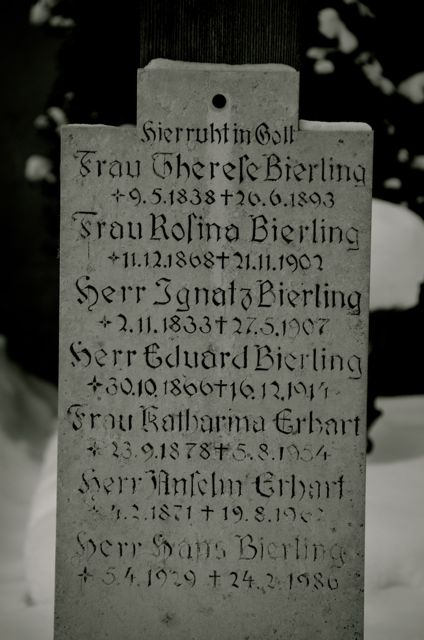 Hier ruht in Gott
Frau Therese Bierling
+9.5.1838+26.6.1893
Frau Rosina Bierling
+11.12.1868+21.11.1902
Herr Ignatz Bierling
+2.11.1833+27.5.1907
Herr Eduard Bierling
+30.10.1866+16.12.1914
Frau Katharina Erhart
+23.9.1878+5.8.1954
Herr Anselm Erhart
+4.2.1871+19.8.1962
Herr Hans Bierling
+5.4.1929+24.2.1986